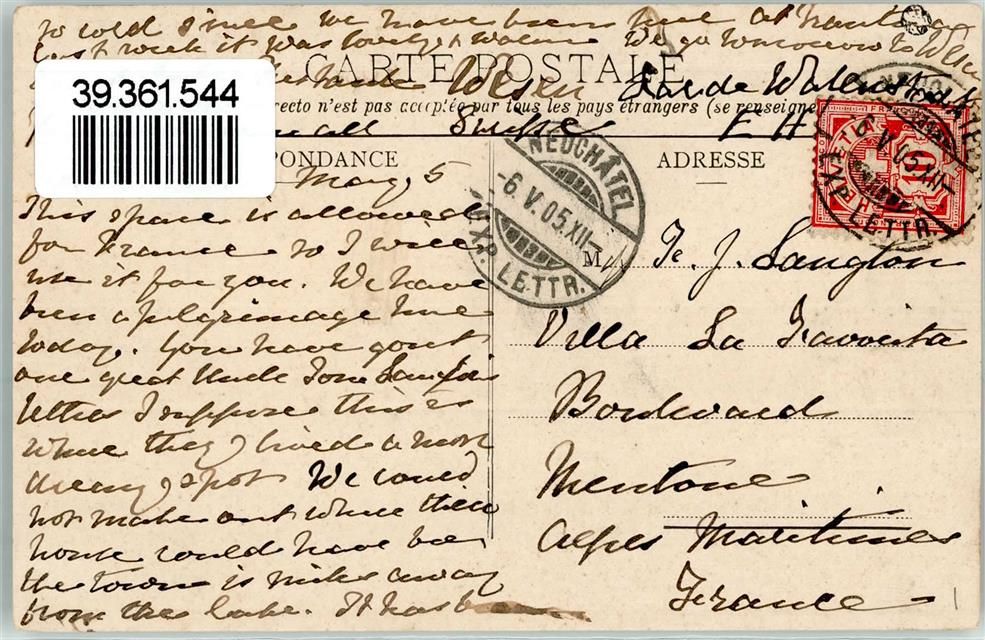 so cold since we have been here at
last week it was lovely & warm We go tomorrow to Wesen
39.361.544
CARTE POSTALE
Wesen
recto n'est pas acceptée par tous les pays étrangers (se renseigne
Suisse
PONDANCE
ADRESSE
May 5
This space is allowed
for France so I will
use it for you. We have
been a pilgrimage here
today. You have got
one great Uncle Tom
letters I suppose this is
where they lived a most
dreary spot We could
not make out where their
house could have been
the town is miles away
from the lake. It has
NEUCHÂTEL
-6.V.05.XII-
EXP. LETTR.
M
J. Langton
Villa La Favorita
Boulevard
Mentone
Alpes Maritimes
France
FRANCO
10
V.05.XII-
LETTR.